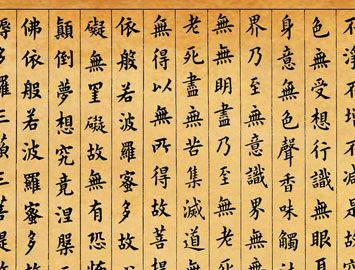 不淨不增不減是故
色無受想行識無眼
身意無色聲香味觸法
界乃至無意識界無
無無明盡乃至無老
老死盡無苦集滅道無
無得以無所得故菩
依般若波羅蜜多故
礙無罣礙故無有恐怖
顛倒夢想究竟涅槃
佛依般若波羅蜜多故
耨多羅三藐三菩提